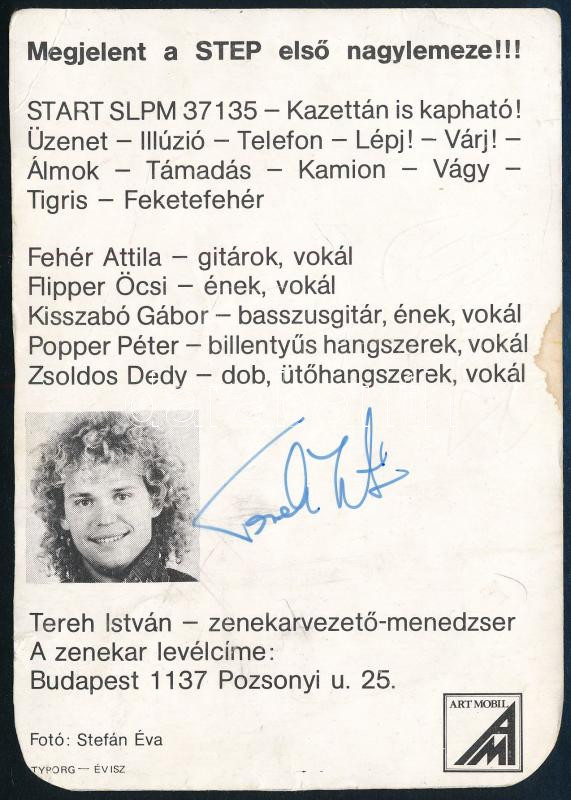 Megjelent a STEP első nagylemeze!!!
START SLPM 37135 – Kazettán is kapható!
Üzenet – Illúzió – Telefon – Lépj! – Várj! –
Álmok – Támadás – Kamion – Vágy –
Tigris – Feketefehér
Fehér Attila – gitárok, vokál
Flipper Öcsi – ének, vokál
Kisszabó Gábor – basszusgitár, ének, vokál
Popper Péter – billentyűs hangszerek, vokál
Zsoldos Dedy – dob, ütőhangszerek, vokál
Tereh István – zenekarvezető-menedzser
A zenekar levélcíme:
Budapest 1137 Pozsonyi u. 25.
ART MOBIL
AM
Fotó: Stefán Éva
TYPORG — ÉVISZ